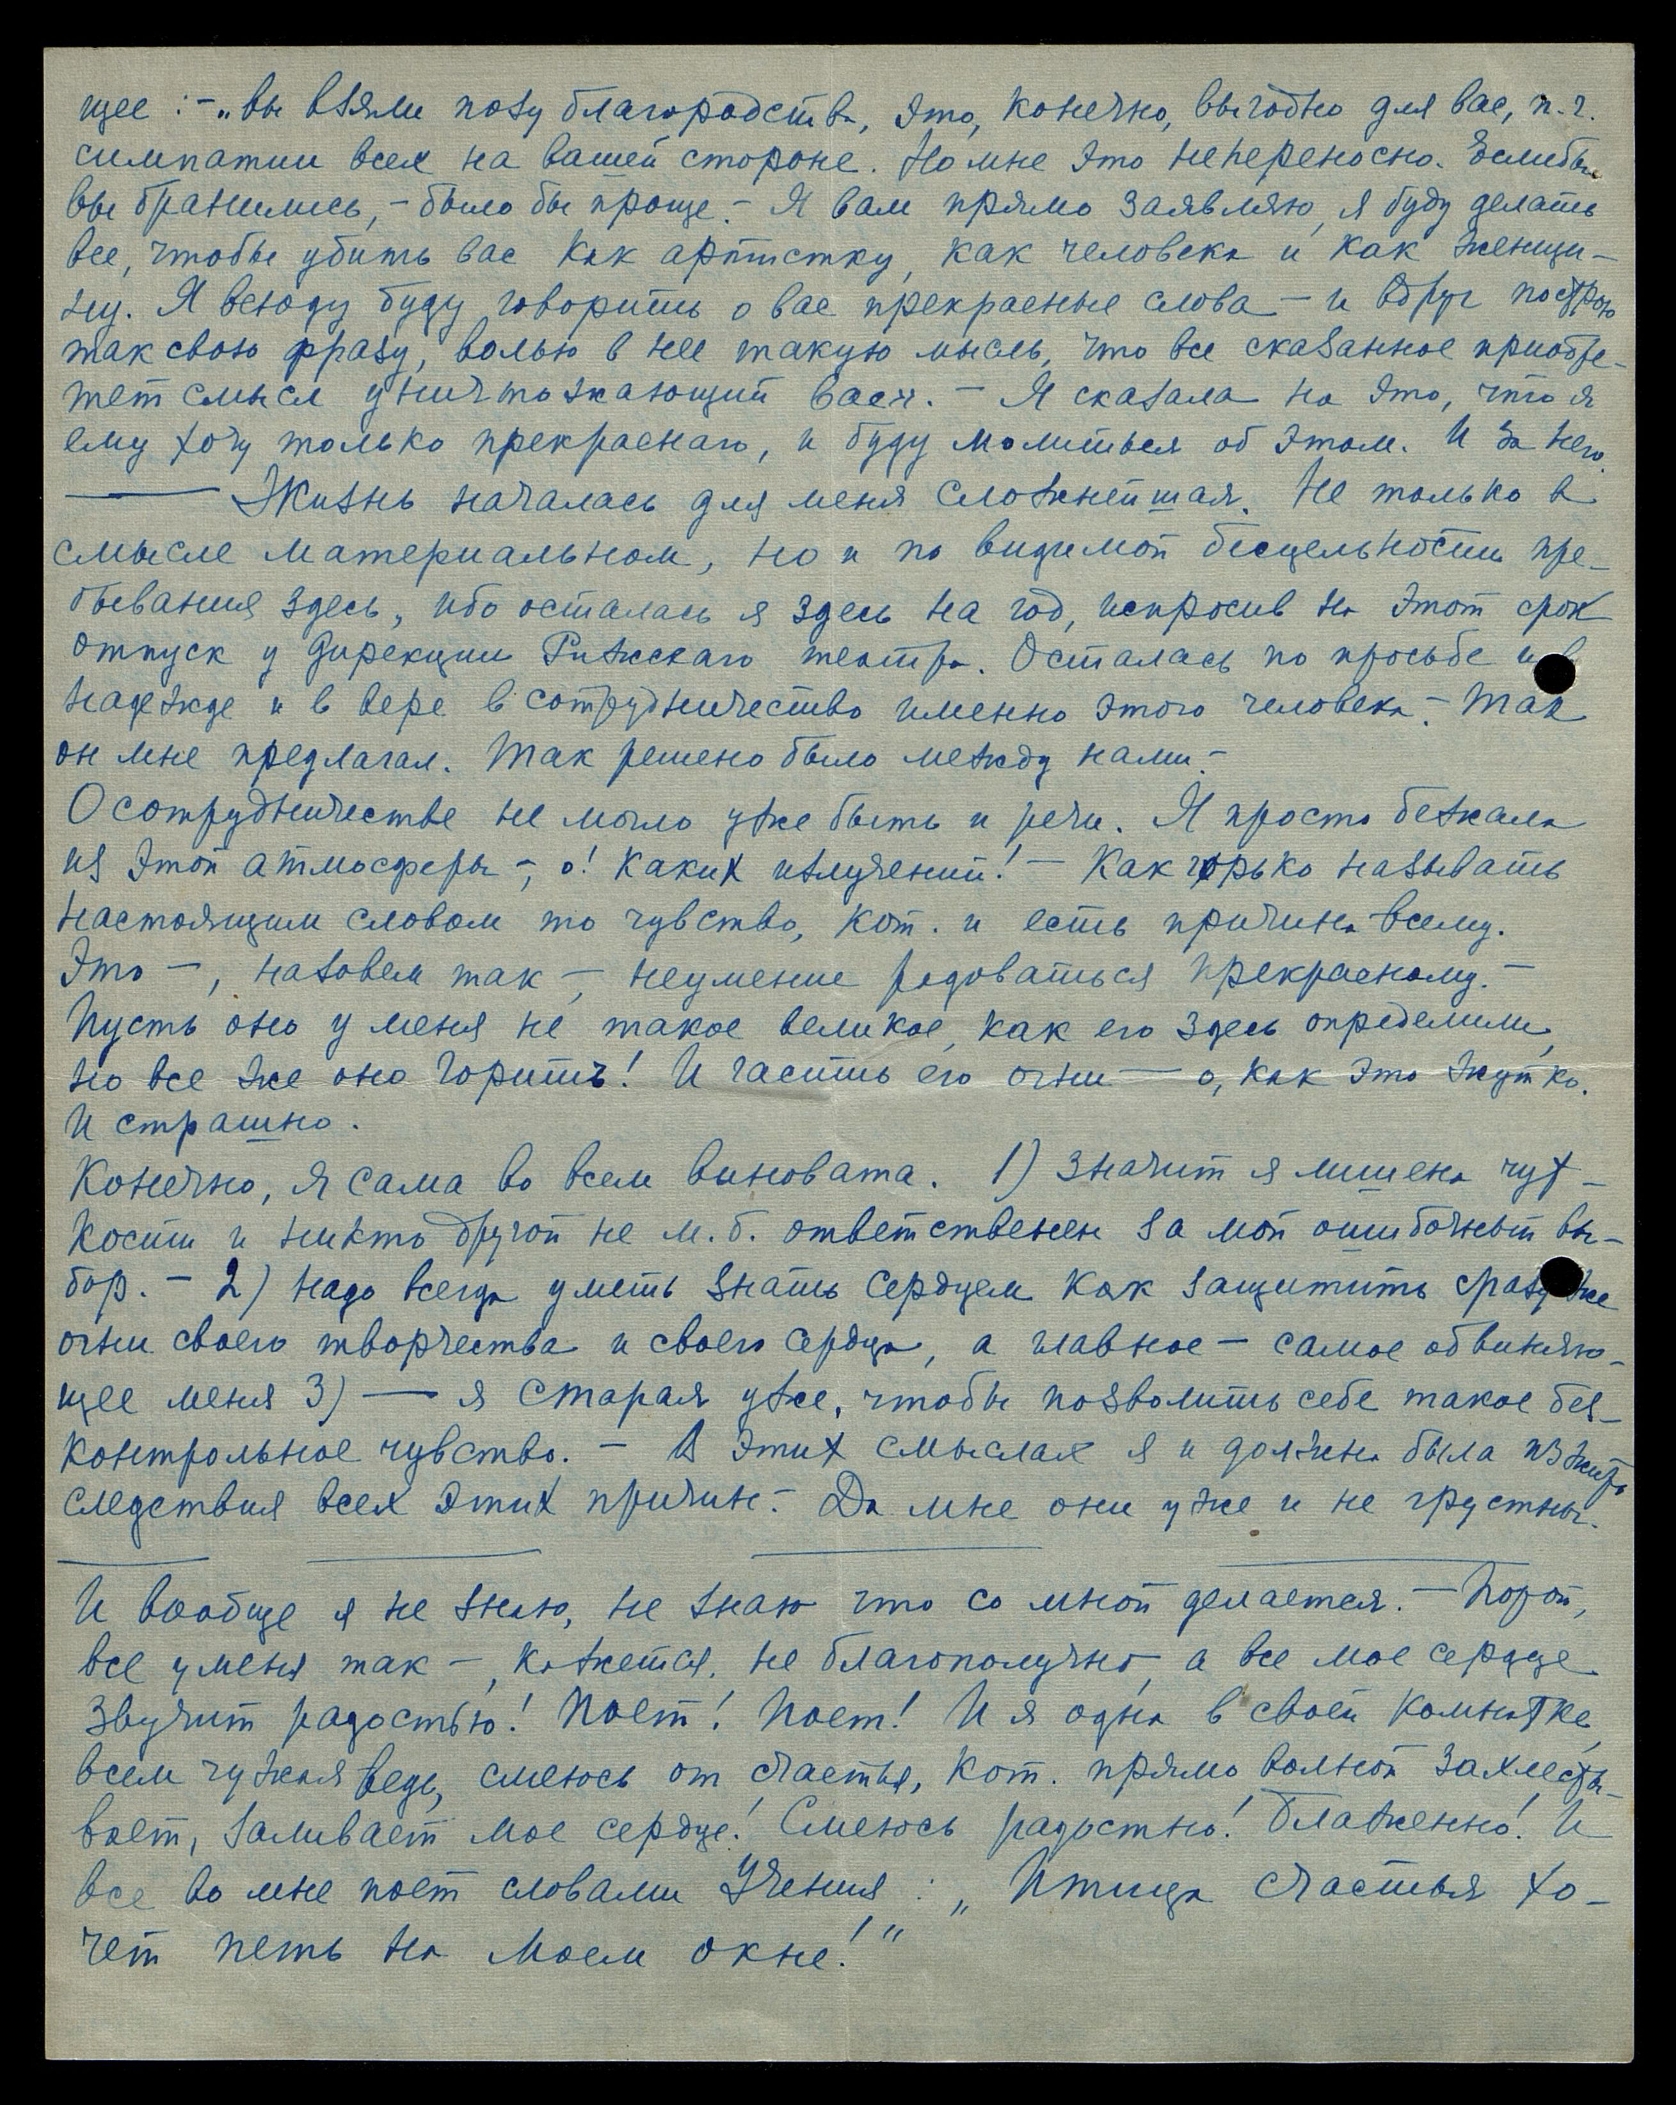 щее : - „вы взяли позу благородства, это, конечно, выгодно для вас, п.ч.
симпатии всех на вашей стороне. Но мне это непереносно. Если бы
вы бранились, - было бы проще. - Я вам прямо заявляю, я буду делать
все, чтобы убить вас как артистку, как человека и как женщи-
ну. Я всюду буду говорить о вас прекрасные слова - и вдруг построю
так свою фразу, волью в нее такую мысль, что все сказанное приобре-
тет смысл уничтожающий вас". - Я сказала на это, что я
ему хочу только прекраснаго, и буду молиться об этом. И за него.
— Жизнь началась для меня сложнейшая. Не только в
смысле материальном, но и по видимой бесцельности пре-
бывания здесь, ибо осталась я здесь на год, испросив на этот срок
отпуск у Дирекции Рижскаго театра. Осталась по просьбе и в
надежде и в вере в сотрудничество именно этого человека. - Так
он мне предлагал. Так решено было между нами. -
О сотрудничестве не могло уже быть и речи. Я просто бежала
из этой атмосферы -, о! каких излучений! - Как горько называть
настоящим словом то чувство, кот. и есть причина всему.
Это -, назовем так -, неумение радоваться прекрасному. -
Пусть оно у меня не такое великое, как его здесь определили,
но все же оно горитъ! И гасить его огни — о, как это жутко.
И страшно.
Конечно, я сама во всем виновата. 1) Значит я лишена чут-
кости и никто другой не м.б. ответственен за мой ошибочный вы-
бор. - 2) надо всегда уметь знать сердцем как защитить сразу же
огни своего творчества и своего сердца, а главное - самое обвиняю-
щее меня 3) — я старая уже, чтобы позволить себе такое без-
контрольное чувство. - В этих смыслах я и должна была изжить
следствия всех этих причин. - Да мне они уже и не грустны.
И вообще я не знаю, не знаю что со мной делается. - Порой,
все у меня так -, кажется, не благополучно, а все мое сердце
звучит радостью! Поет! Поет! И я одна в своей комнатке,
всем чужая ведь, смеюсь от счастья, кот. прямо волной захлесты-
вает, заливает мое сердце! Смеюсь радостно! Блаженно! И
все во мне поет словами Учения : „Птица счастья хо-
чет петь на моем окне!"